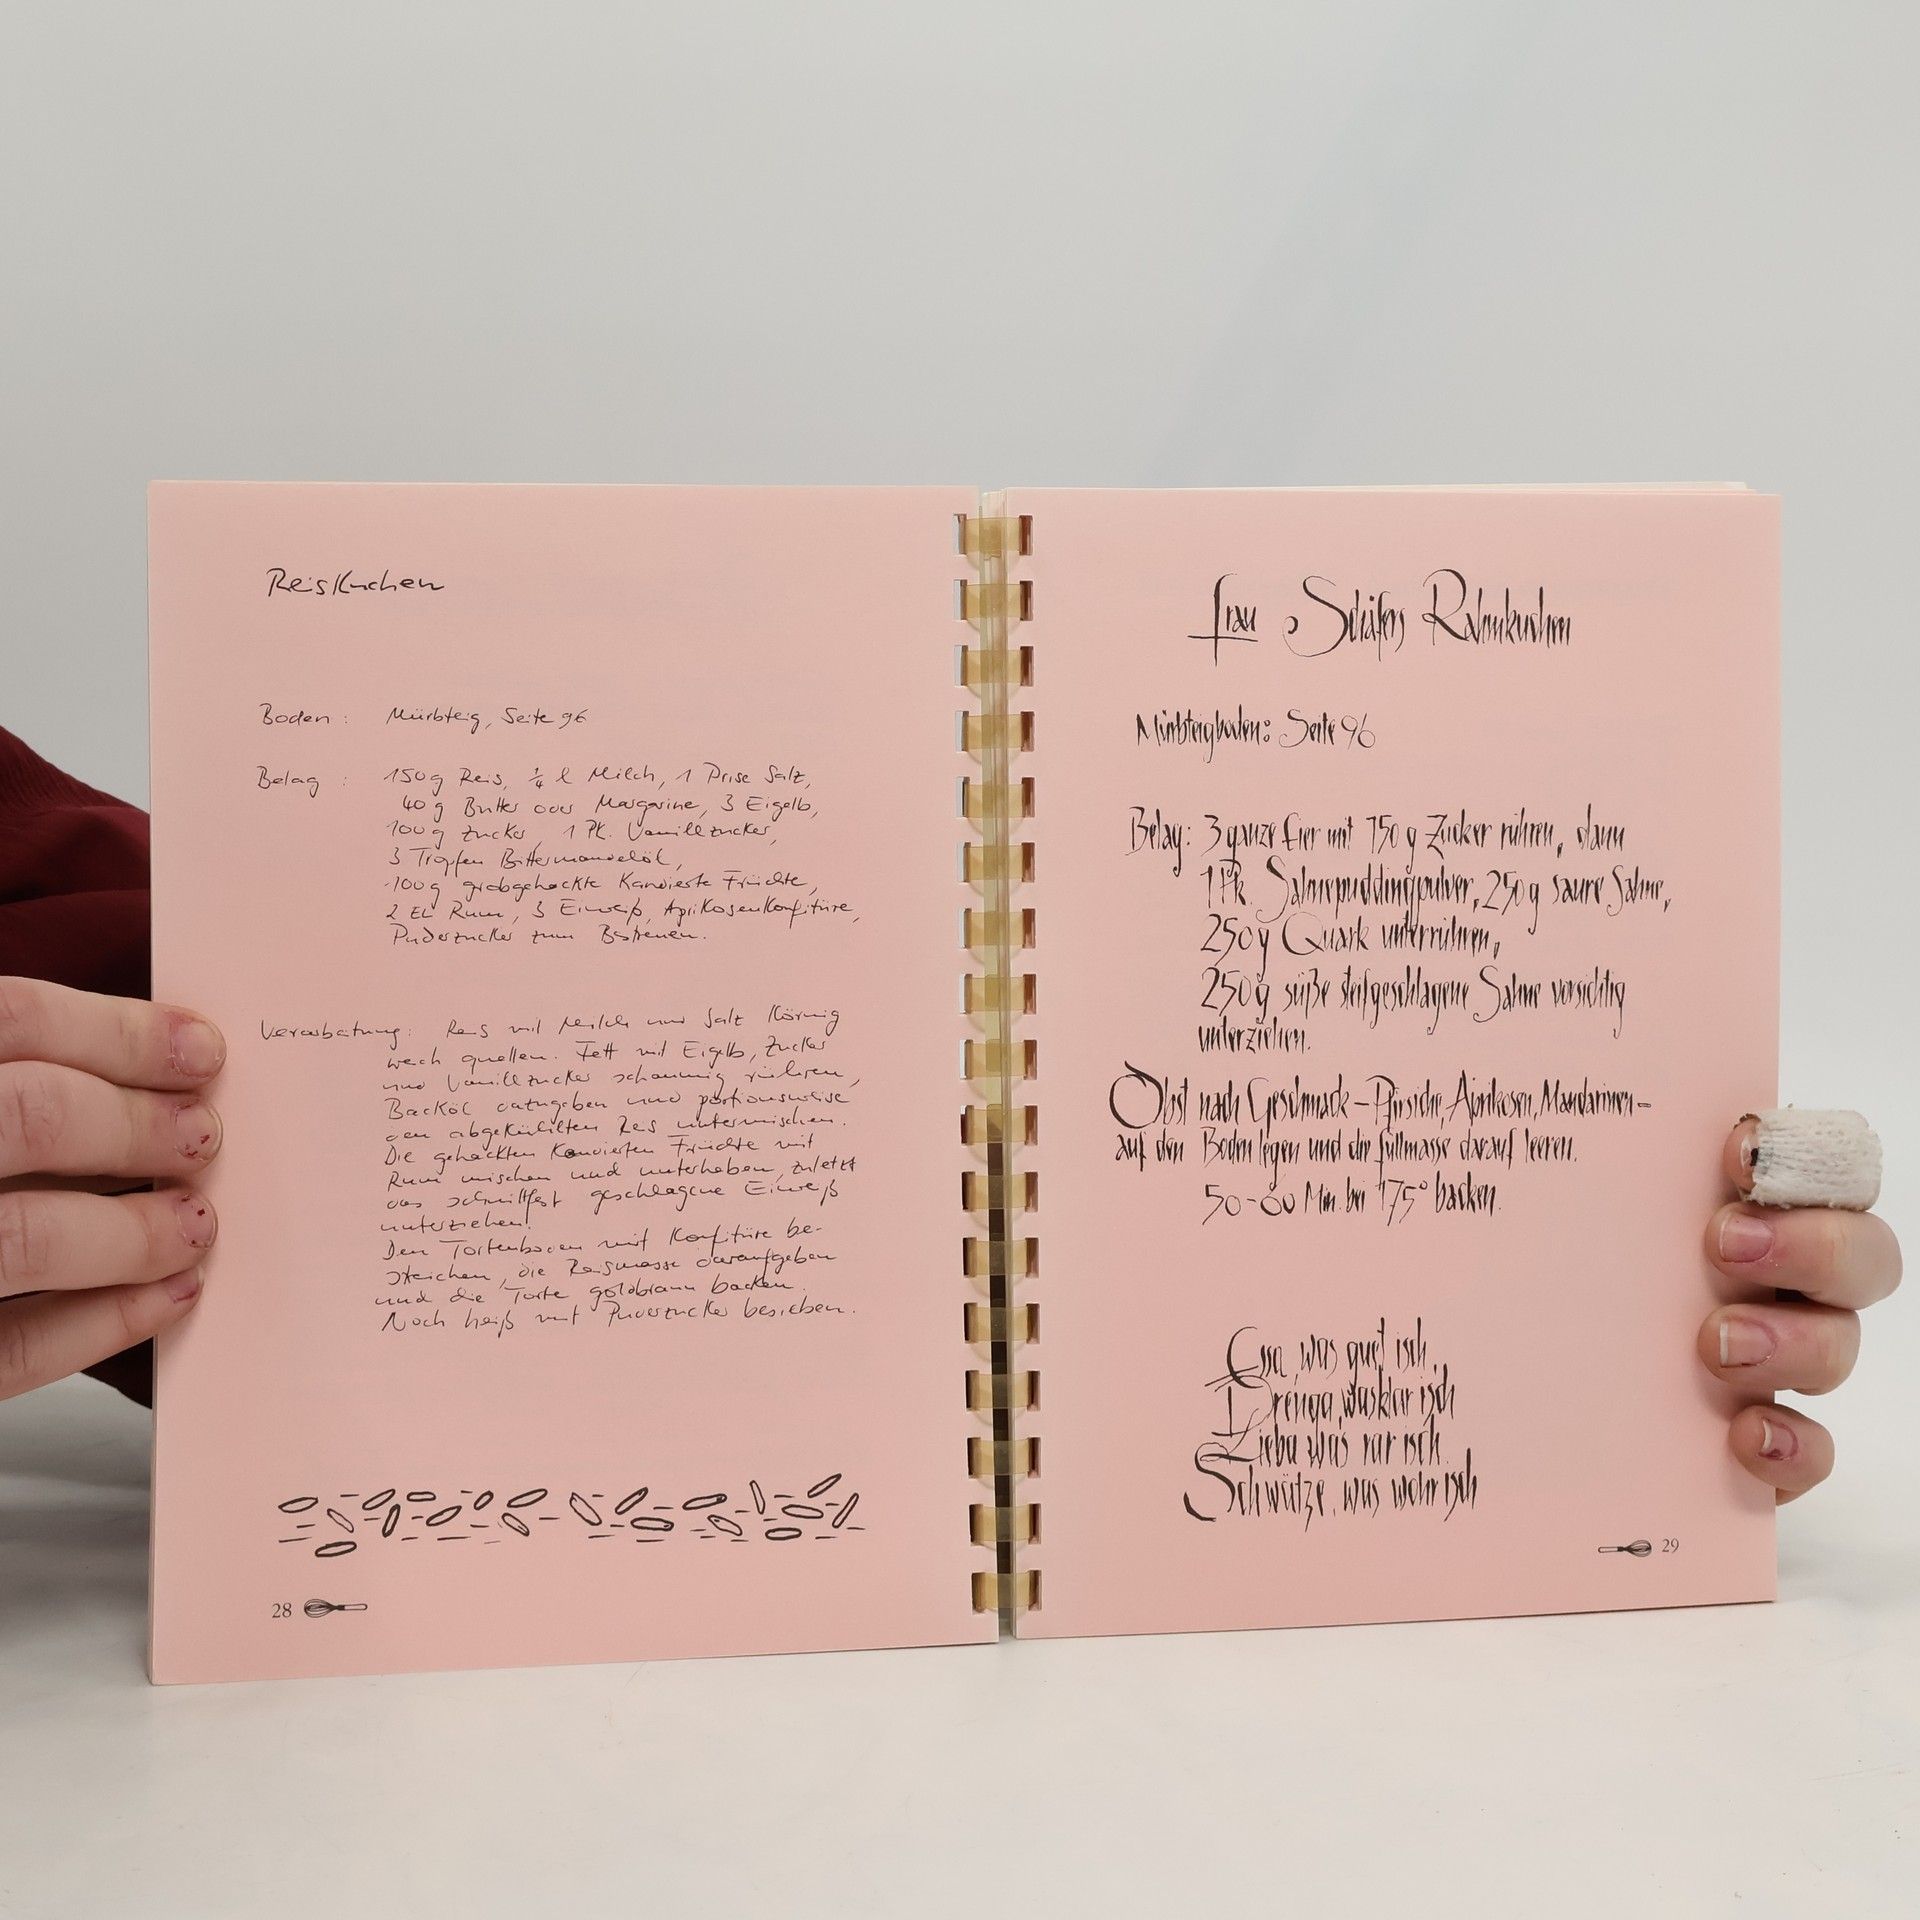 Reiskuchen
Boden : Mürbteig, Seite 96
Belag : 150g Reis, 1/4 l Milch, 1 Prise Salz,
40 g Butter oder Margarine, 3 Eigelb,
100g Zucker, 1 Pk. Vanillzucker,
3 Tropfen Bittermandelöl,
100g grobgehackte Kandierte Früchte,
2 EL Rum, 3 Eiweiß, Aprikosenkonfitüre,
Puderzucker zum Bestreuen.
Verarbeitung: Reis mit Milch und Salz Körnig
weich quellen. Fett mit Eigelb, Zucker
und Vanillzucker schaumig rühren,
Backöl dazugeben und portionsweise
den abgekühlten Reis untermischen.
Die gehackten Kandierten Früchte mit
Rum mischen und unterheben, zuletzt
das schnittfest geschlagene Eiweiß
unterziehen!
Den Tortenboden mit Konfitüre be-
streichen, die Reismasse daraufgeben
und die Torte goldbraun backen.
Noch heiß mit Puderzucker besieben.
28
Frau Schäfers Rahmkuchen
Mürbteigboden: Seite 96
Belag: 3 ganze Eier mit 150 g Zucker rühren, dann
1 Pk. Sahnepuddingpulver, 250g saure Sahne,
250g Quark unterrühren,
250g süße steifgeschlagene Sahne vorsichtig
unterziehen.
Obst nach Geschmack - Pfirsiche, Aprikosen, Mandarinen -
auf den Boden legen und die Füllmasse darauf leeren.
50-60 Min. bei 175° backen.
Essa, was guet isch,
Drenga, was klar isch
Lieba was rar isch.
Schwätze, was wohr isch
29